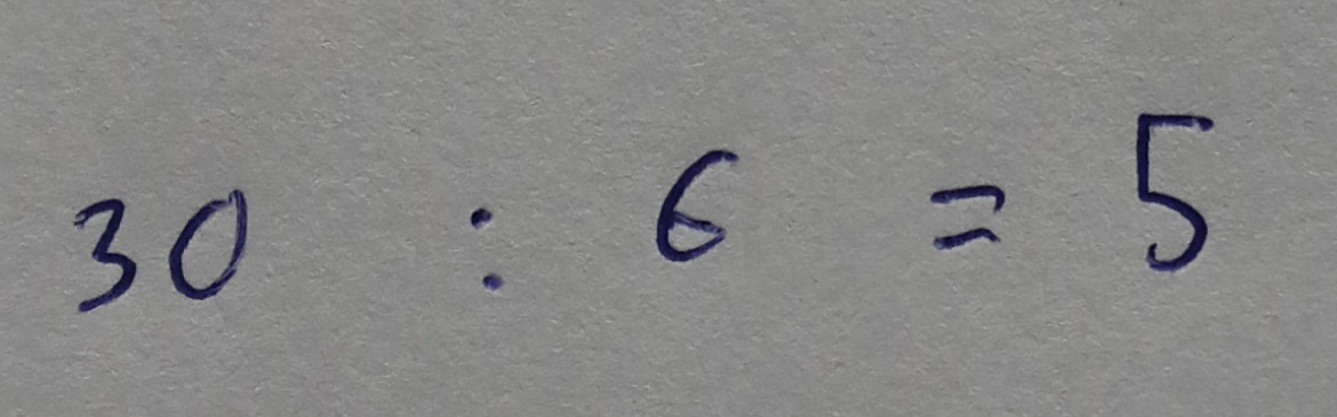 30 : 6 = 5